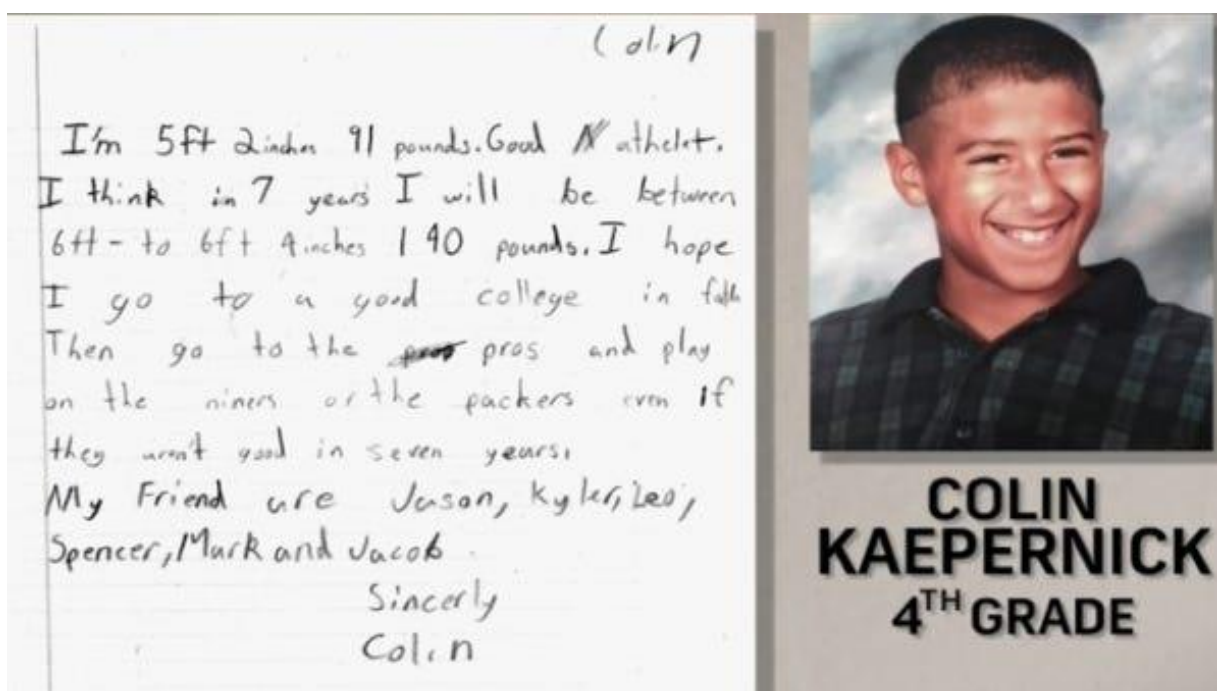 Colin
I'm 5ft 2inches 91 pounds. Good athelet.
I think in 7 years I will be between
6ft - to 6ft 4inches 190 pounds. I hope
I go to a good college in
Then go to the pros and play
on the niners or the packers even if
they aren't good in seven years.
My Friend are Jason, Kyler, Leo,
Spencer, Mark and Jacob
Sincerly
Colin
COLIN
KAEPERNICK
4TH GRADE